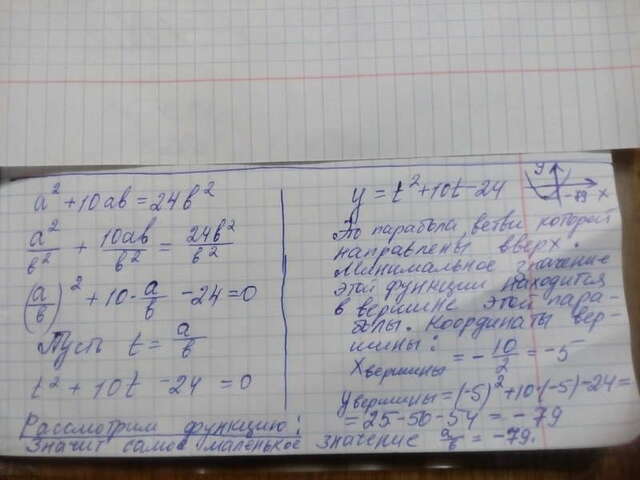 a² + 10ab = 24b²
a²/b² + 10ab/b² = 24b²/b²
(a/b)² + 10·a/b - 24 = 0
Пусть t = a/b
t² + 10t - 24 = 0
y = t² + 10t - 24
y
x
-79
Это парабола, ветви которой
направлены вверх.
Минимальное значение
этой функции находится
в вершине этой пара-
болы. Координаты вер-
шины:
x вершины = - 10/2 = -5
y вершины = (-5)² + 10·(-5) - 24 =
= 25 - 50 - 54 = -79
Рассмотрим функцию:
Значит самое маленькое значение a/b = -79.